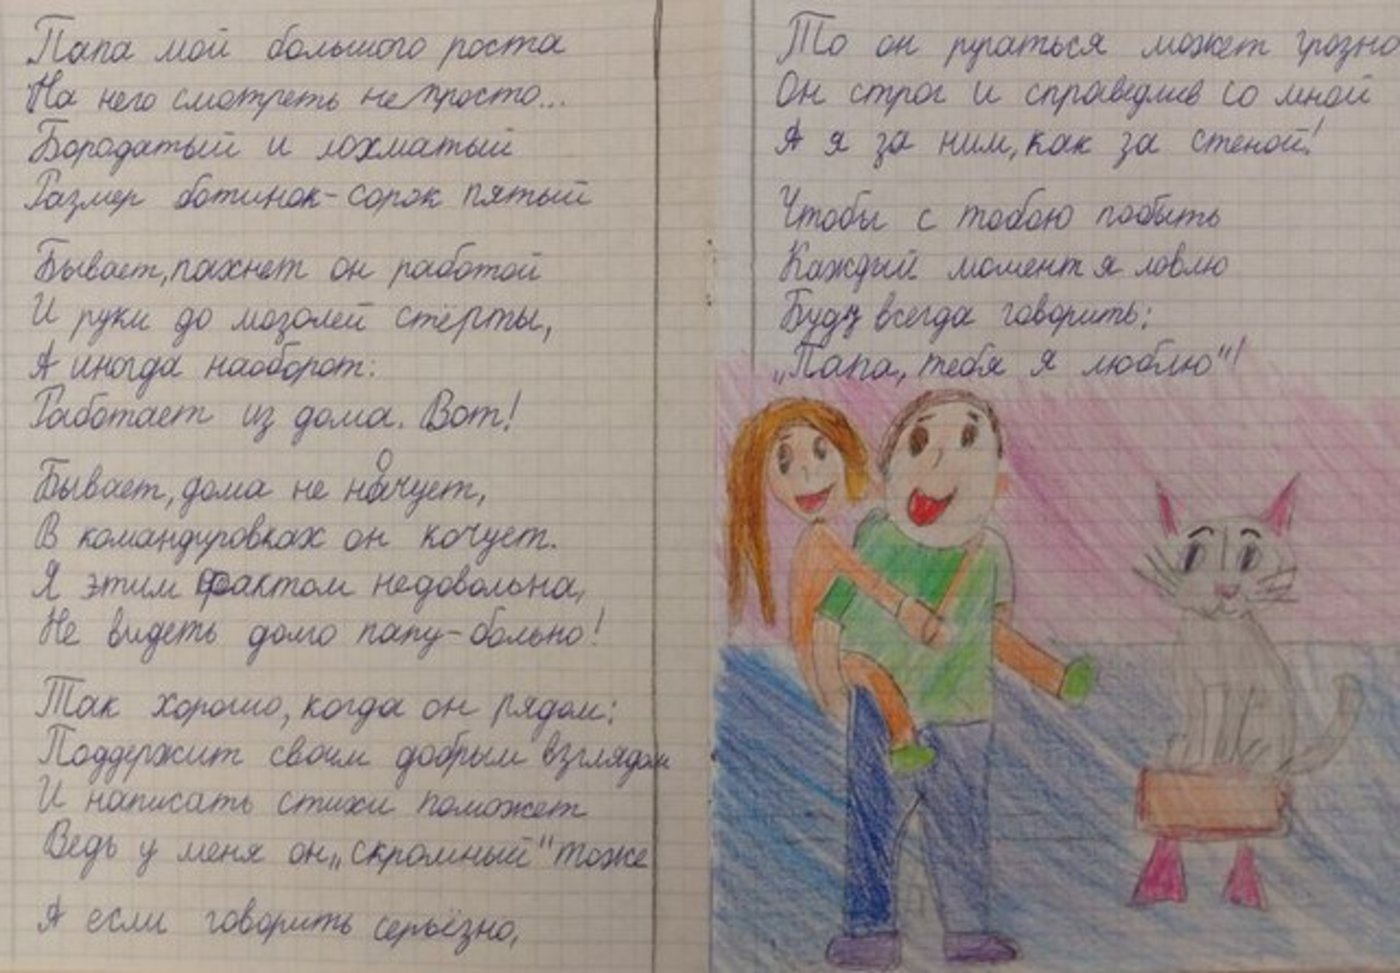 Папа мой большого роста
На него смотреть не просто...
Бородатый и лохматый
Размер ботинок-сорок пятый
Бывает, пахнет он работой
И руки до мозолей стёрты,
А иногда наоборот:
Работает из дома. Вот!
Бывает, дома не ночует,
В командировках он кочует.
Я этим фактом недовольна,
Не видеть долго папу-больно!
Так хорошо, когда он рядом:
Поддержит своим добрым взглядом
И написать стихи поможет
Ведь у меня он „скромный" тоже
А если говорить серьёзно,
То он ругаться может грозно
Он строг и справедлив со мной
А я за ним, как за стеной!
Чтобы с тобою побыть
Каждый момент я ловлю
Буду всегда говорить:
„Папа, тебя я люблю"!